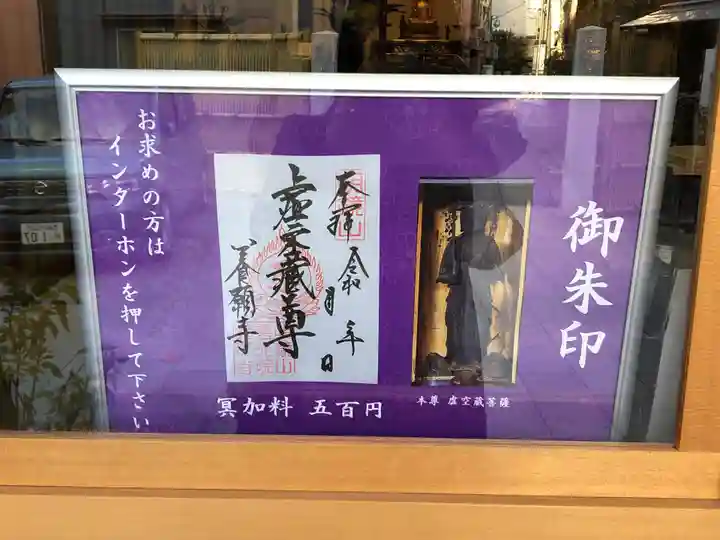 御朱印
本尊 虚空蔵菩薩
奉拝
令和 年
月 日
虚空蔵尊
養願寺
冥加料 五百円
お求めの方は
インターホンを押して下さい